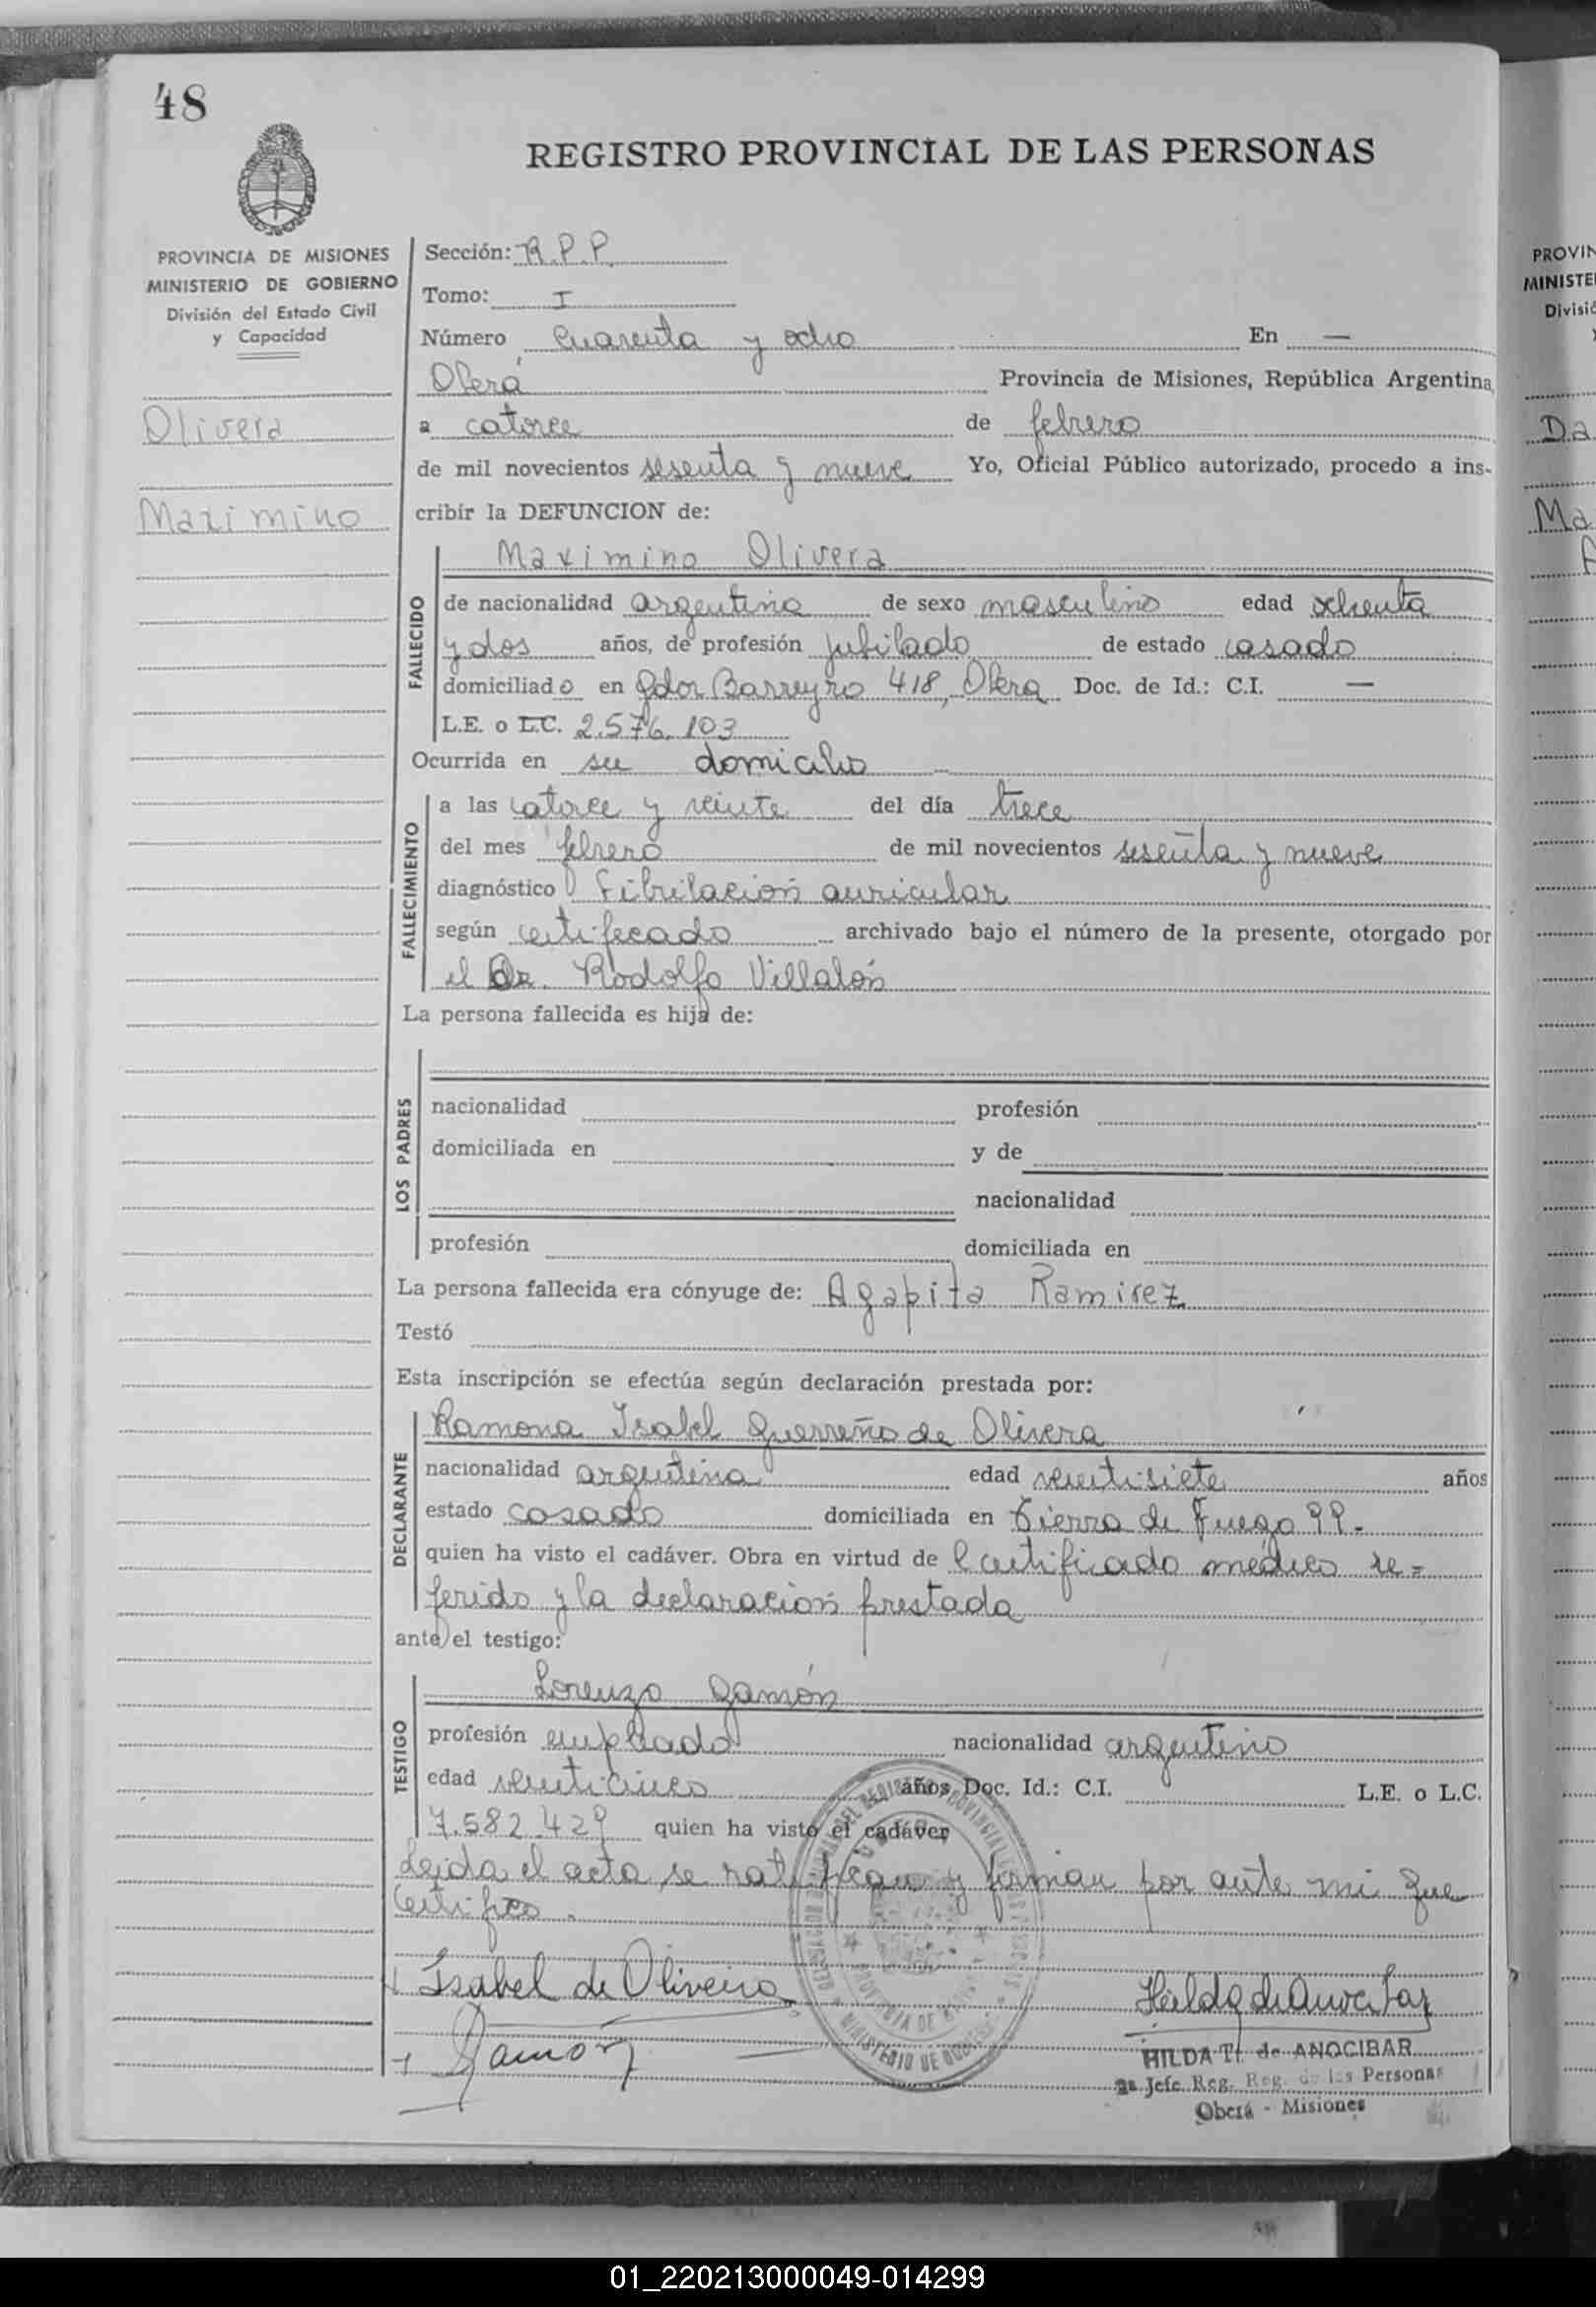 48
REGISTRO PROVINCIAL DE LAS PERSONAS
PROVINCIA DE MISIONES
MINISTERIO DE GOBIERNO
División del Estado Civil
y Capacidad
Olivera
Maximino
Sección: R.P.P.
Tomo: I
Número Cuarenta y ocho En —
Oberá Provincia de Misiones, República Argentina,
a catorce de febrero
de mil novecientos sesenta y nueve Yo, Oficial Público autorizado, procedo a ins-
cribir la DEFUNCION de:
Maximino Olivera
FALLECIDO
de nacionalidad argentina de sexo masculino edad ochenta
y dos años, de profesión jubilado de estado casado
domiciliado en Gdor Barreyro 418, Oberá Doc. de Id.: C.I. —
L.E. o L.C. 2.576.103
Ocurrida en su domicilio
FALLECIMIENTO
a las catorce y veinte del día trece
del mes febrero de mil novecientos sesenta y nueve
diagnóstico Fibrilación auricular
según certificado archivado bajo el número de la presente, otorgado por
el Dr. Rodolfo Villalón
La persona fallecida es hija de:
LOS PADRES
nacionalidad profesión
domiciliada en y de
nacionalidad
profesión domiciliada en
La persona fallecida era cónyuge de: Agapita Ramirez
Testó
Esta inscripción se efectúa según declaración prestada por:
Ramona Isabel Guerreño de Olivera
DECLARANTE
nacionalidad argentina edad veintisiete años
estado casado domiciliada en Tierra de Fuego 99.
quien ha visto el cadáver. Obra en virtud de l certificado médico re=
ferido y la declaración prestada
ante el testigo:
Lorenzo Gamón
TESTIGO
profesión empleado nacionalidad argentino
edad veinticinco años, Doc. Id.: C.I. L.E. o L.C.
7.582.429 quien ha visto el cadáver
Leida el acta se ratifican y firman por ante mi que
certifico.
Isabel de Oliveira
Gamón
HILDA T. de ANOCIBAR
2a Jefe Reg. Reg. de las Personas
Oberá - Misiones
PROVIN
MINISTE
Divisió
Da
Ma
01_220213000049-014299